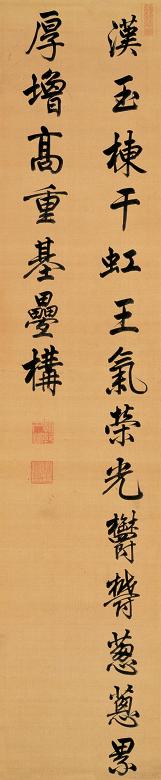 漢玉棟干虹王氣榮光鬱鬱蔥蔥累
厚增高重基疊構